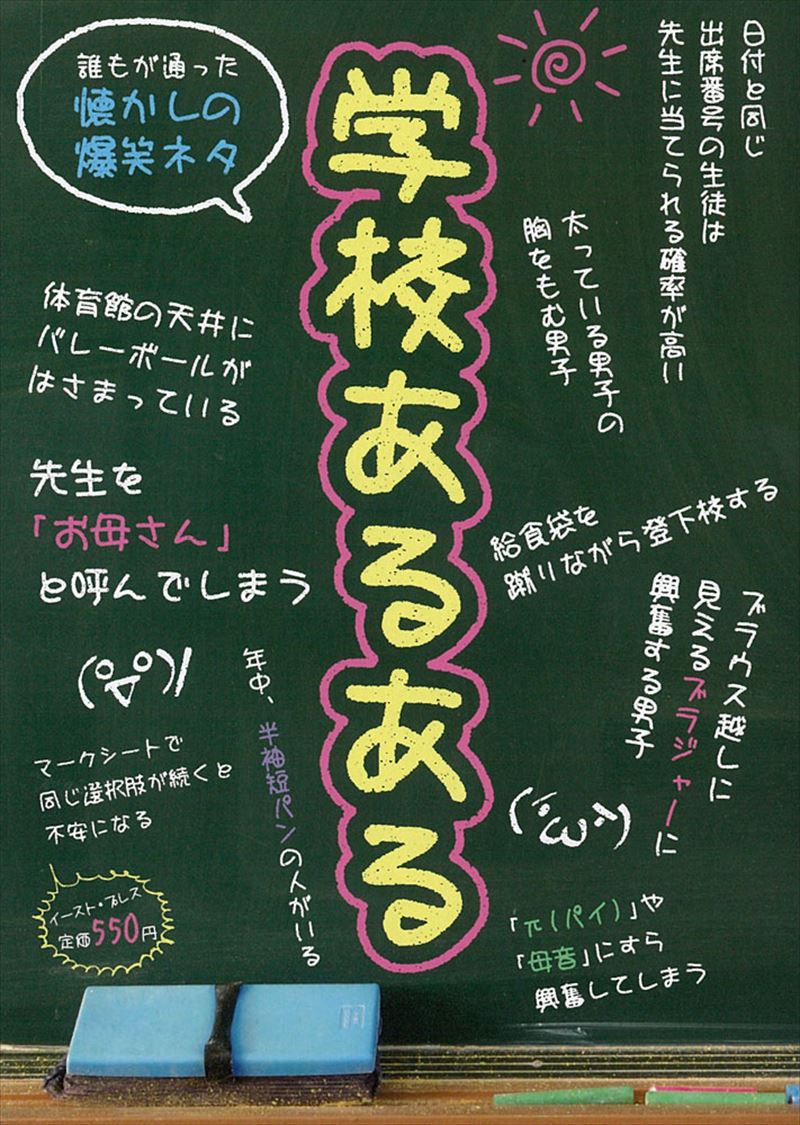 誰もが通った
懐かしの
爆笑ネタ
学校あるある
日付と同じ
出席番号の生徒は
先生に当てられる確率が高い
太っている男子の
胸をもむ男子
体育館の天井に
バレーボールが
はさまっている
先生を
「お母さん」
と呼んでしまう
給食袋を
蹴りながら登下校する
ブラウス越しに
見えるブラジャーに
興奮する男子
年中、半袖短パンの人がいる
マークシートで
同じ選択肢が続くと
不安になる
「π(パイ)」や
「母音」にすら
興奮してしまう
イースト・プレス
定価550円